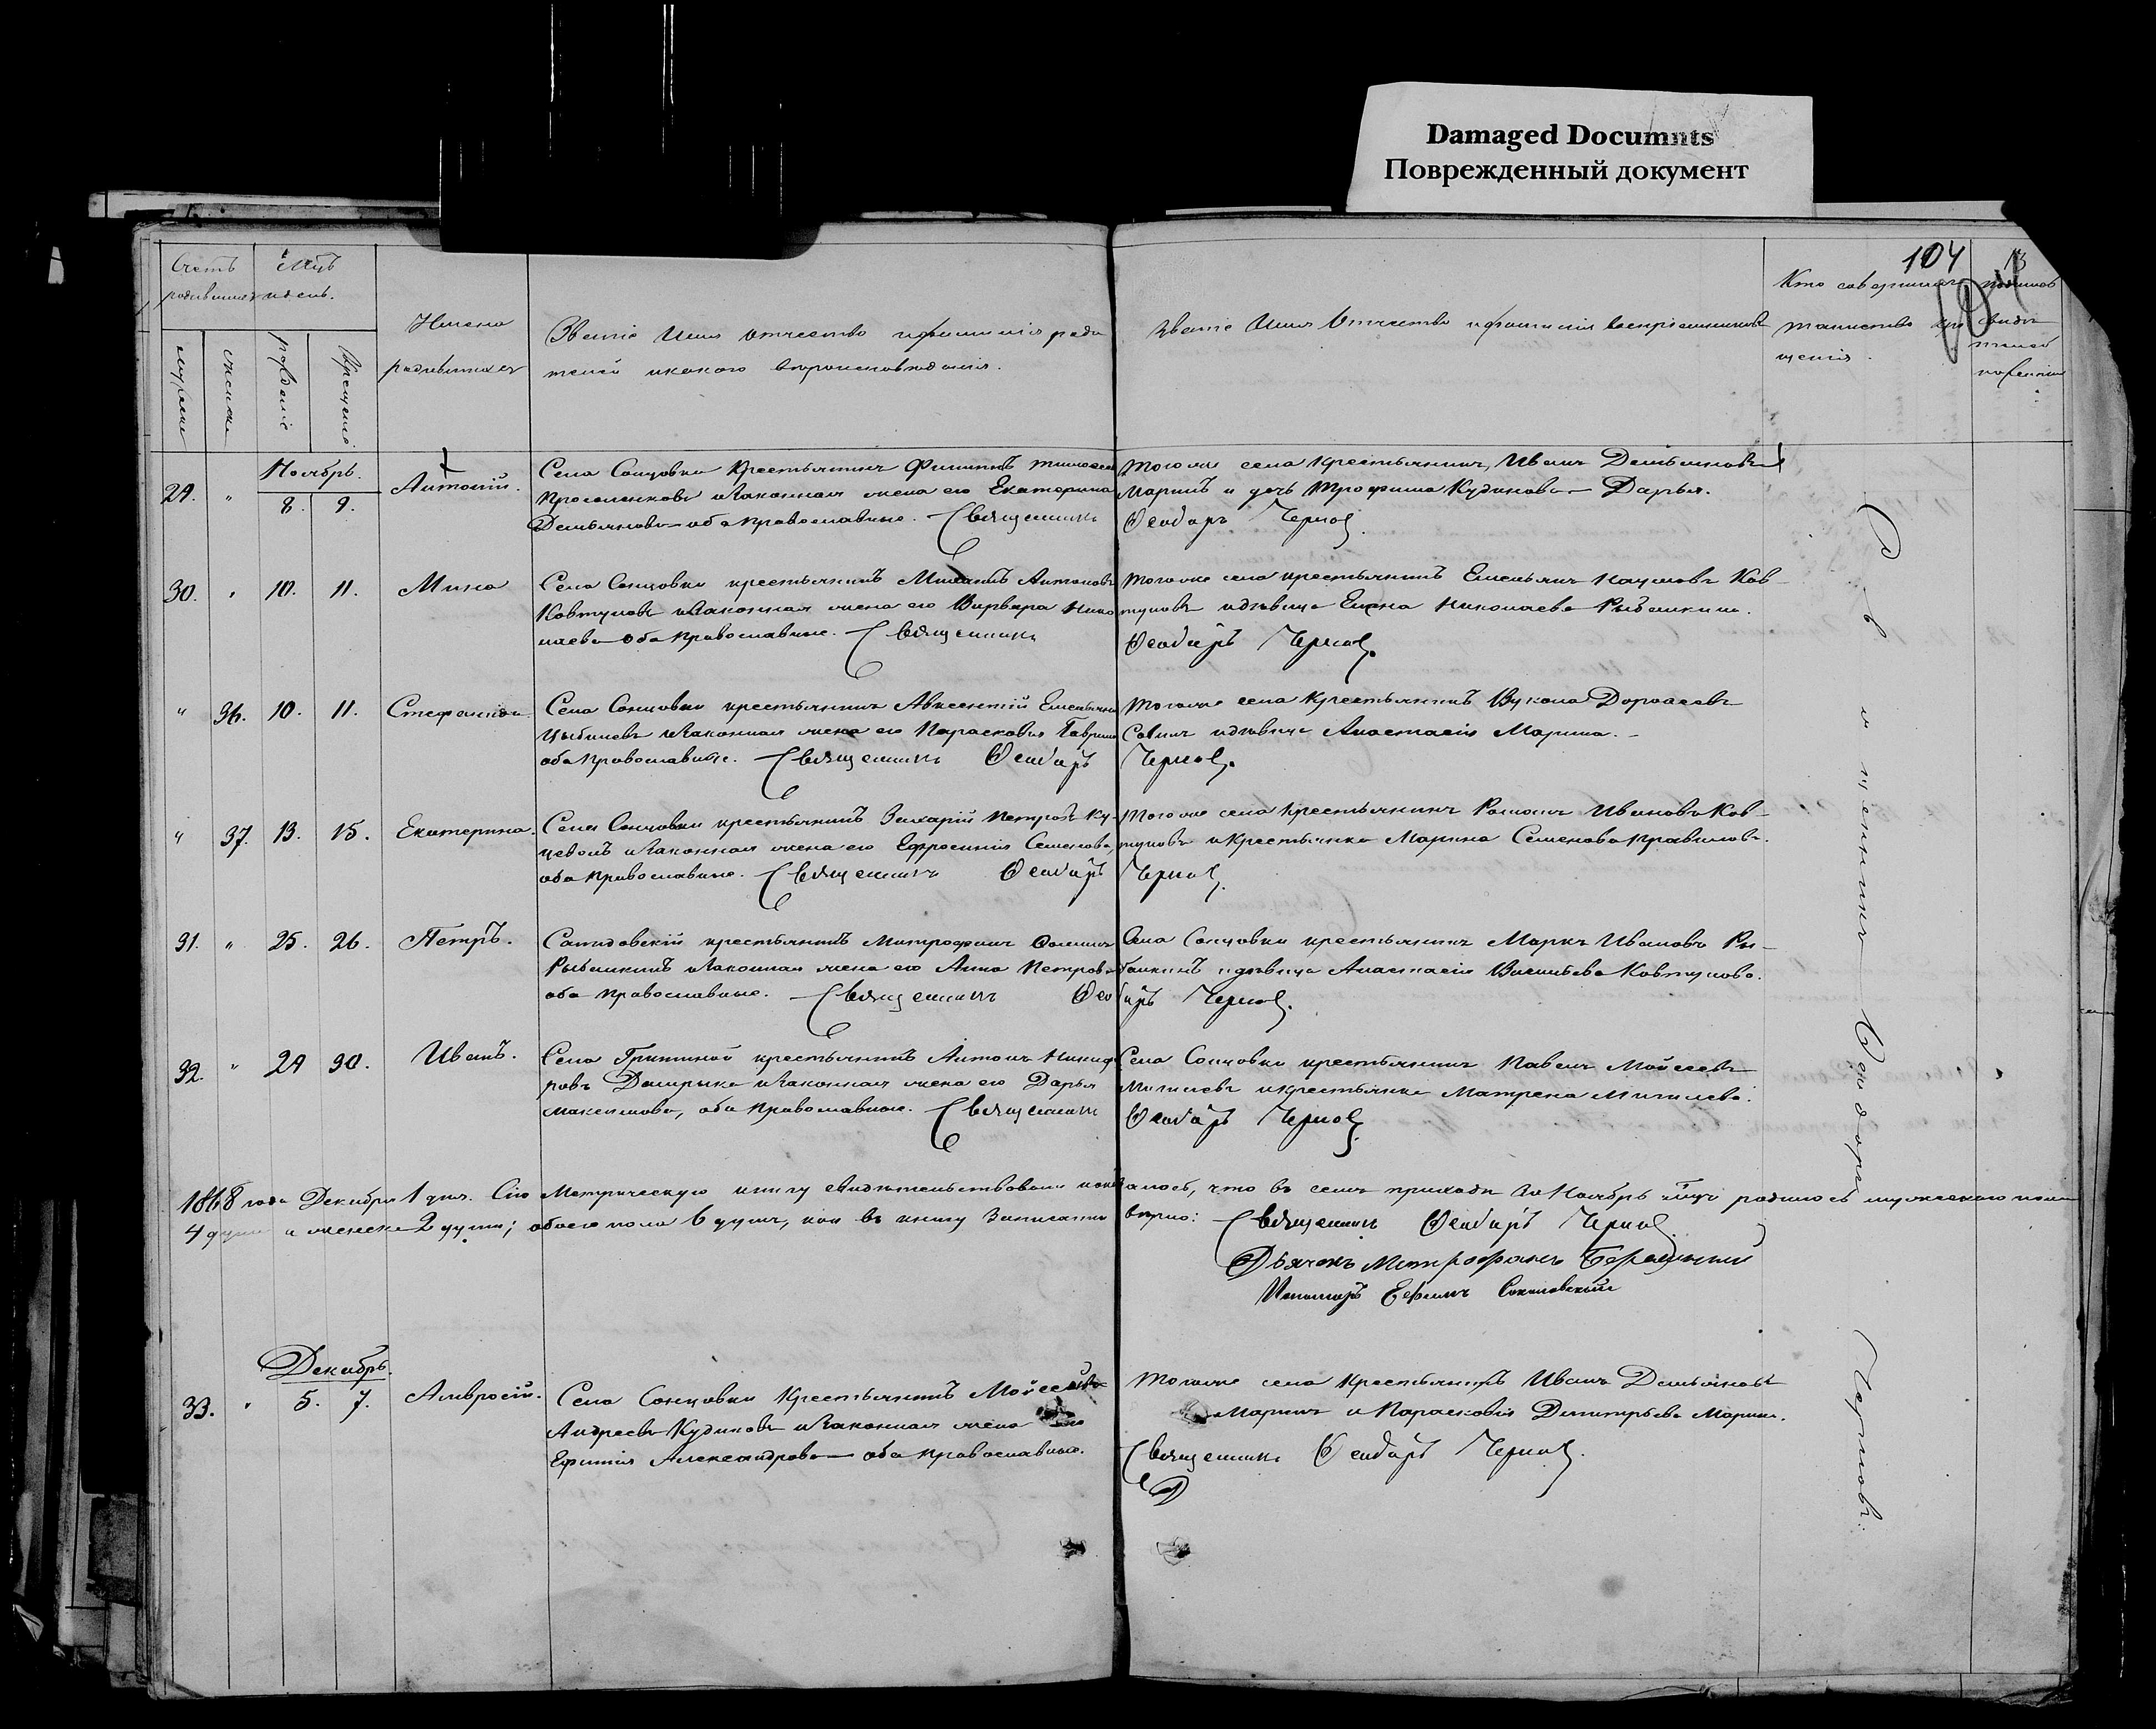 Damaged Documnts
Поврежденный документ
104
Счетъ родившихся
Мцъ и день.
мужеска
женска
рожденіе
крещеніе
Имена
родившихся
Званіе Имя отчество и фамилія роди
телей и какого вѣроисповѣданія.
Званіе Имя Отчество и фамилія воспріемниковъ
Кто совершалъ
таинство кре
щенія.
Ноябрь.
29. " 8. 9. Антоній.
Села Сонцовки Крестьянинъ Филиппъ
и законная жена его Екатерина
Демьянова оба православные. Священникъ
Тогоже села крестьянинъ Иванъ Демьяновъ
Маринъ и дочь Трофима Кудинова Дарья.
Ѳеодоръ Черновъ.
30. " 10. 11. Мина
Села Сонцовки крестьянинъ Антоновъ
Ковтуновъ и законная жена его Варвара Нико
лаева оба православные. Священникъ
Тогоже села крестьянинъ Емельянъ Наумовъ Ков-
туновъ и дѣвица Елена Николаева Рыбалкина.
Ѳеодоръ Черновъ.
" 36. 10. 11. Стефанида
Села Сонцовки крестьянинъ Авксентій Емельяновъ
Цыбулевъ и законная жена его Парасковія
оба православные. Священникъ Ѳеодоръ
Тогоже села крестьянинъ Вукола Дороѳеевъ
и дѣвица Анастасія Марина.
Черновъ.
" 37. 13. 15. Екатерина.
Села Сонцовки крестьянинъ Захарій Петровъ Ку-
и законная жена его Ефросинія Семенова,
оба православные. Священникъ Ѳеодоръ
Тогоже села крестьянинъ Романъ Ивановъ Ков-
туновъ и крестьянка Марина Семенова
Черновъ.
31. " 25. 26. Петръ.
крестьянинъ Митрофанъ
Рыбалкинъ и законная жена его Анна Петрова
оба православные. Священникъ Ѳео
Села Сонцовки крестьянинъ Маркъ Ивановъ Ры-
балкинъ и дѣвица Анастасія Васильева Ковтунова.
доръ Черновъ.
32. " 29 30. Иванъ.
Села Гришиной крестьянинъ Антонъ Никифо
ровъ и законная жена его Дарья
Максимова, оба православные. Священникъ
Села Сонцовки крестьянинъ Павелъ Мойсеевъ
и крестьянка Матрена
Ѳеодоръ Черновъ.
1868 года Декабря 1 дня. Сію Метрическую книгу свидѣтельствовали и оказалось, что въ семъ приходѣ за Ноябрь мцъ родилось мужескаго пола
4 души и женска 2 души; обоего пола 6 душъ, кои въ книгу записаны вѣрно: Священникъ Ѳеодоръ Черновъ
Дьячокъ Митрофанъ
Пономарь Ефимъ Соколовскій
Декабрь.
33. " 5. 7. Амвросій.
Села Сонцовки Крестьянинъ Мойсей
Андреевъ Кудиновъ и законная жена его
Ефимія Александрова оба православные.
Тогоже села крестьянинъ Иванъ Демьяновъ
Маринъ и Парасковія Димитріева Марина.
Священникъ Ѳеодоръ Черновъ.
Священникъ Ѳеодоръ Черновъ.